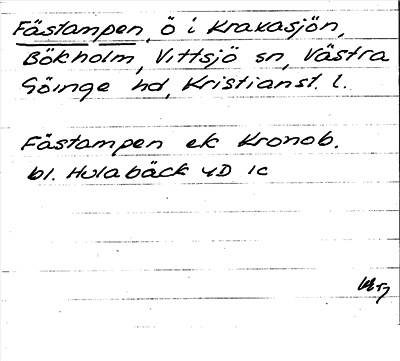 Fästampen, ö i Kraxasjön,
Bökholm, Vittsjö sn, Västra
Göinge hd, Kristianst. l.
Fästampen ek Kronob.
bl. Hulabäck 4D 1c